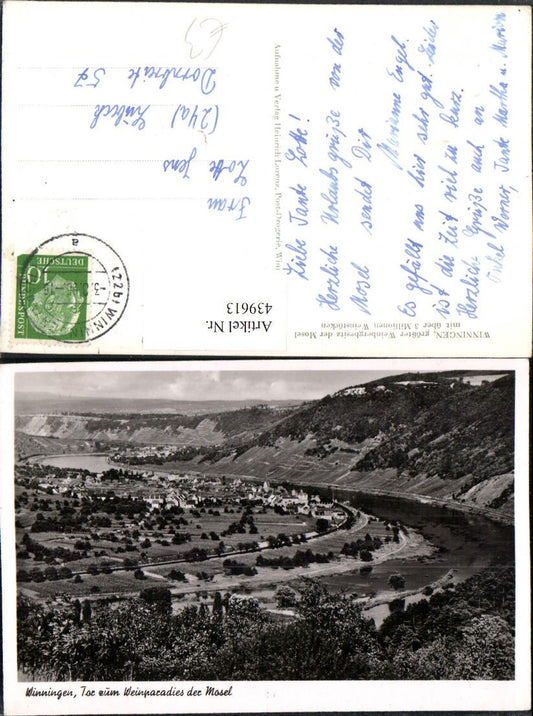 Liebe Tante Lotte!
Herzliche Urlaubsgrüße von der
Mosel sendet Dir
Marianne Engel.
Es gefällt uns hier sehr gut. Leider
ist die Zeit viel zu kurz.
Herzliche Grüße auch an
Onkel Werner, Tante Martha u. Marion
WINNINGEN, größter Weinbergbesitz der Mosel
mit über 3 Millionen Weinstöcken
Aufnahme u. Verlag Heinrich Lorenz, Photo-Drogerie, Winn
Frau
Lotte Jens
(24a) Lübeck
Dornbreite 57
€3
DEUTSCHE
BUNDESPOST
10
(22b) WINNIN
a
Artikel Nr.
439613
Winningen, Tor zum Weinparadies der Mosel